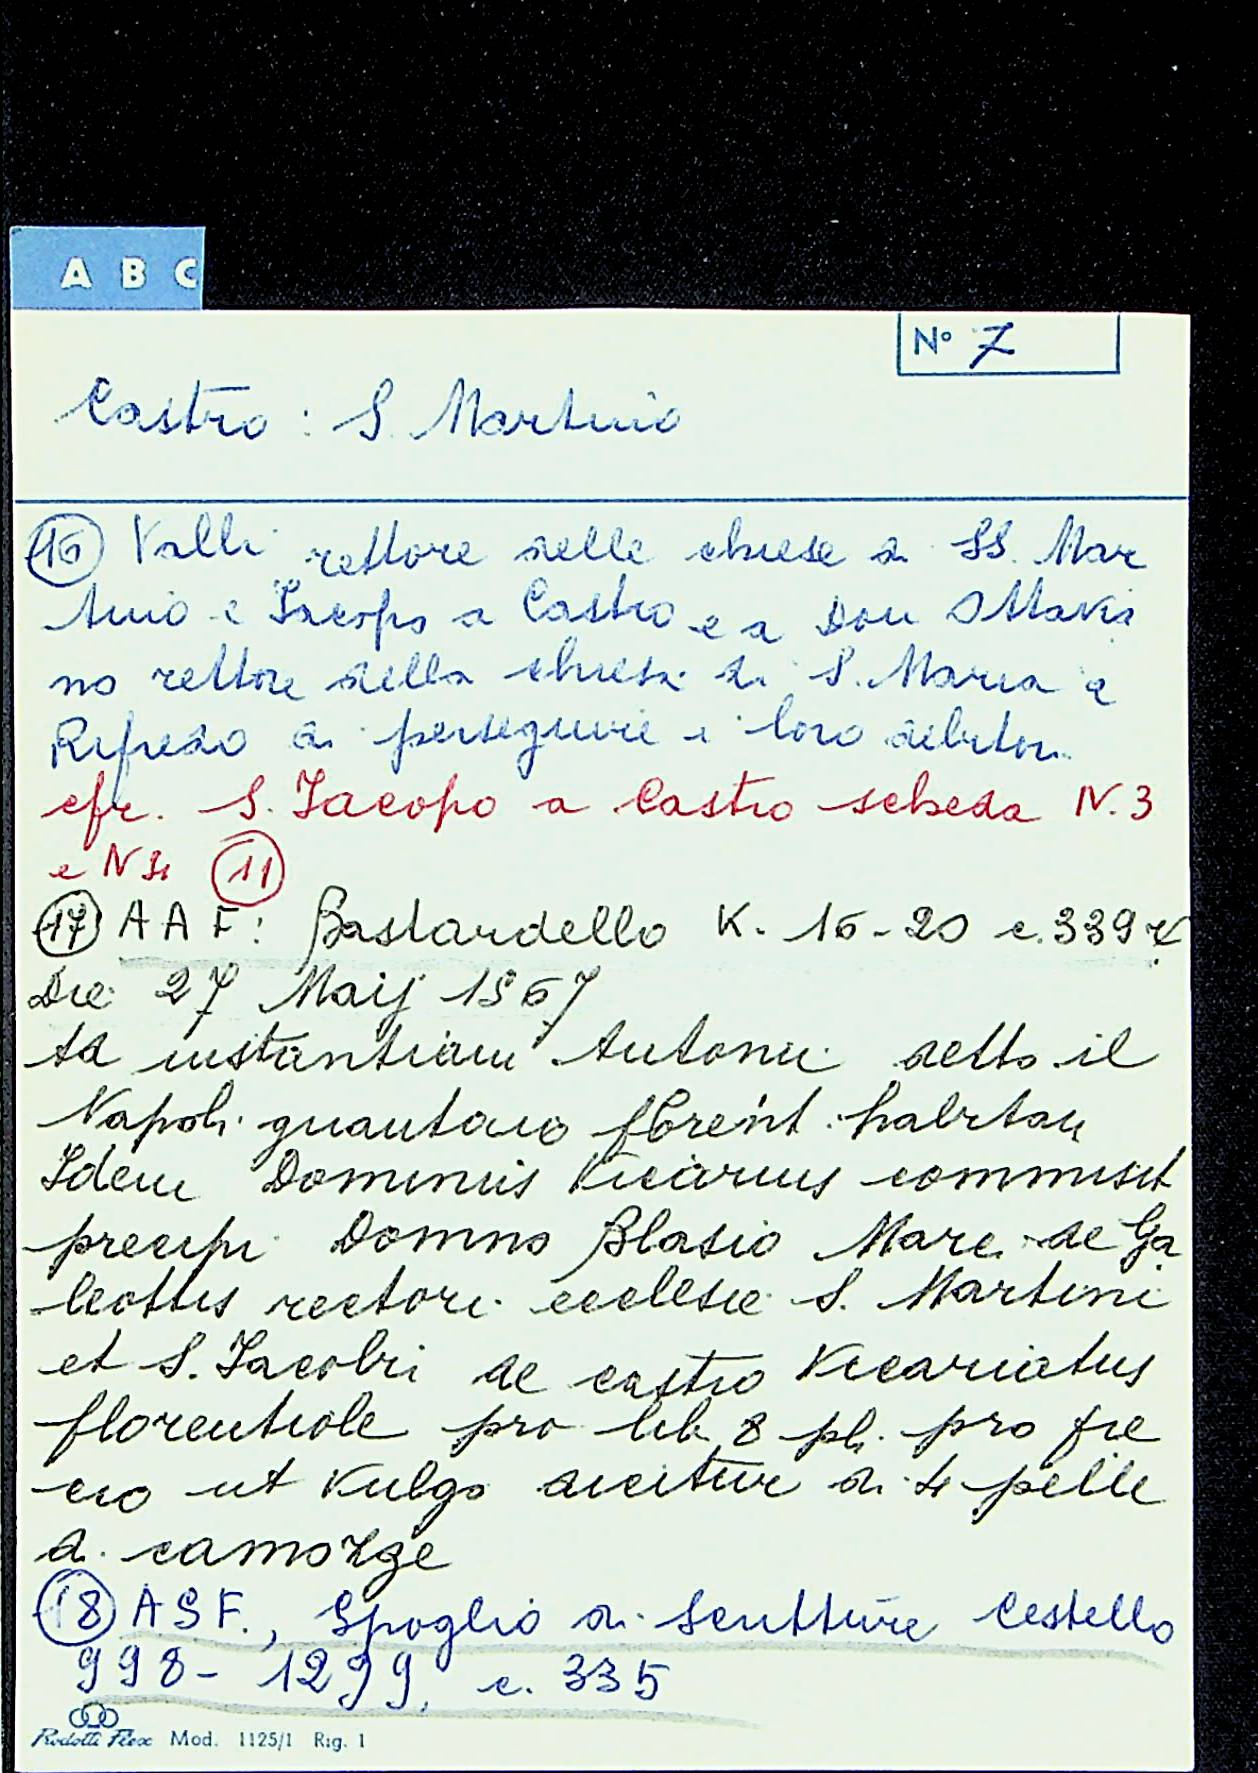 A B C
N° 7
Castro : S. Martino
(16) Valli rettore delle chiese di SS. Mar
tino e Jacopo a Castro e a Don Ottavia
no rettore della chiesa di S. Maria a
Rifredo di perseguire i loro debitori
cfr. S. Jacopo a Castro scheda N. 3
e N 4 (11)
(17) A A F: Bastardello K. 16-20 c. 339 r
Die 27 Maij 1567
ad instantiam Antonii detto il
Napoli guantaio florent. habitan
Idem Dominus Vicarius commisit
precipi Domno Blasio Marc. de Ga
leottis rectori ecclesie S. Martini
et S. Jacobi de castro Vicariatus
florentiole pro lib. 8 pl. pro pre
cio ut vulgo dicitur di 4 pelle
di camozze
(18) A S F., Spoglio di Scritture Cestello
998 - 1299, c. 335
Rodolti Flex Mod. 1125/1 Rig. 1